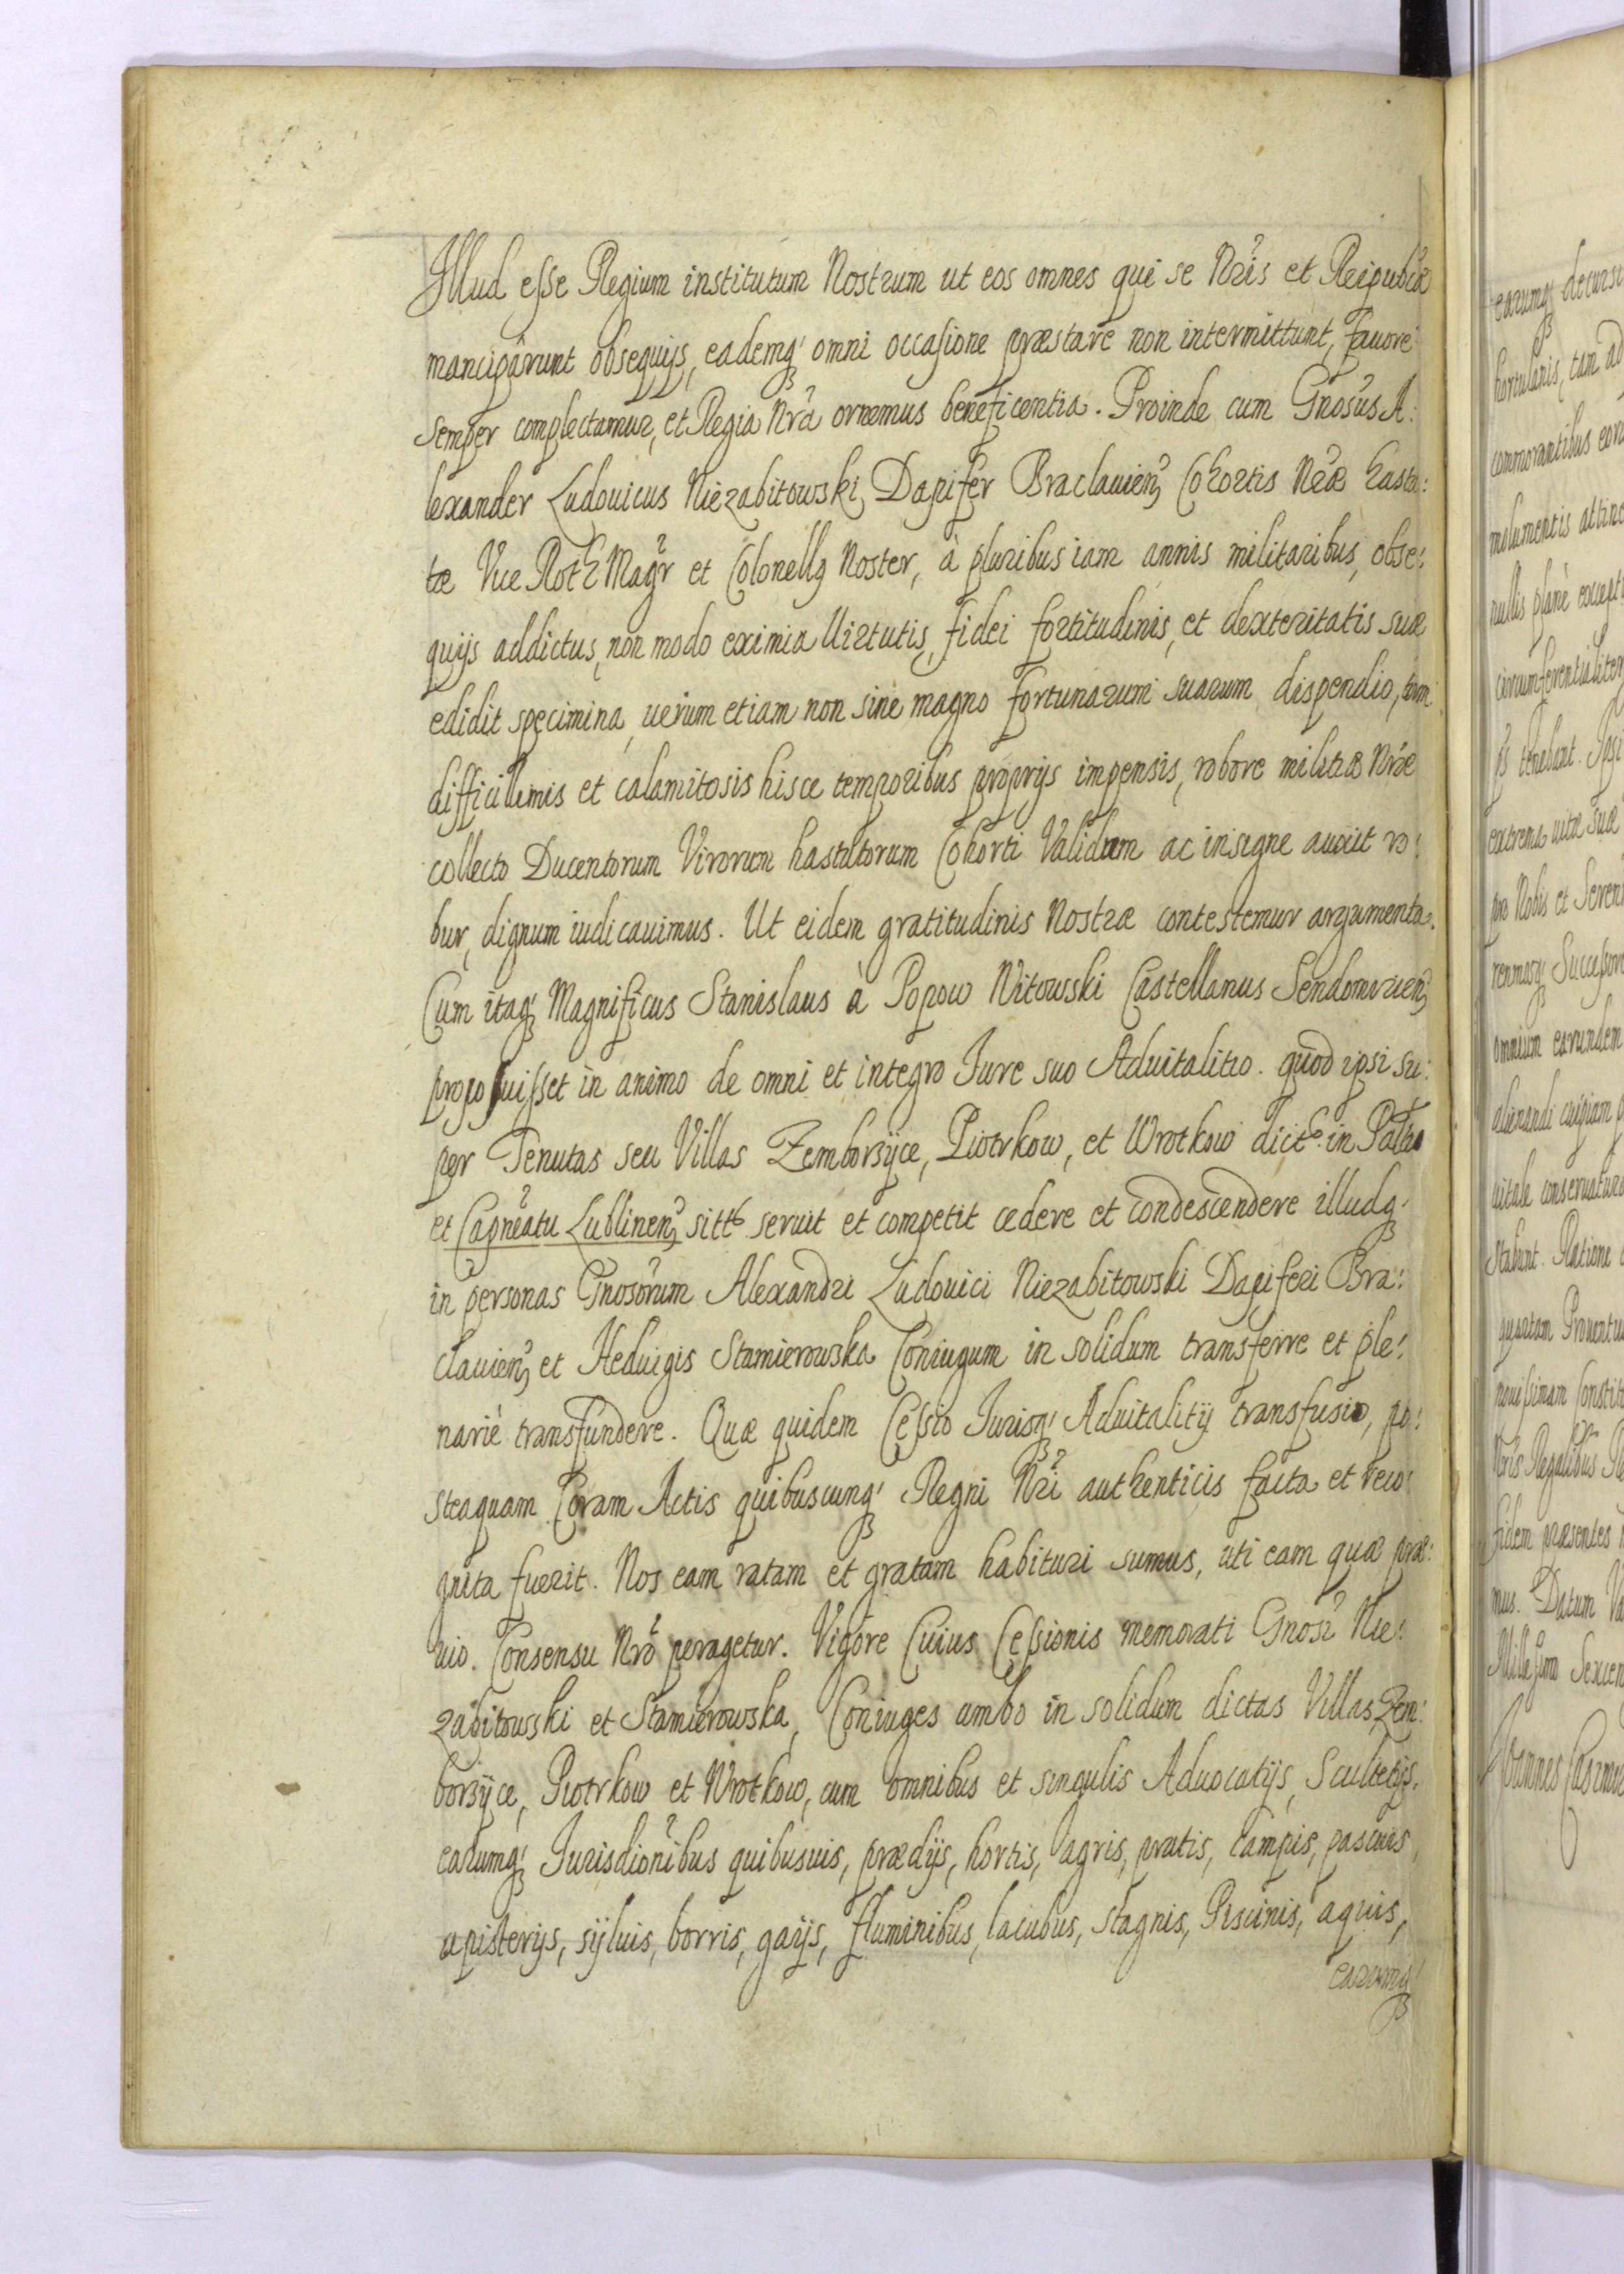 Illud esse Regium institutum Nostrum ut eos omnes qui se Nris et Reipublcæ
mancipârunt obsequijs, eademq' omni occasione præstare non intermittunt, fauore
semper complectamur, et Regia Nrâ ornemus beneficentia. Proinde cum Gnosus A:
lexander Ludouicus Niezabitowski Dapifer Braclauien, Cohortis Nræ hasta:
tæ Vice Roth Magr et Colonellg Noster, à pluribus iam annis militaribus, obse:
quijs addictus, non modo eximia Uirtutis, fidei fortitudinis, et dexteritatis suæ
edidit specimina, uerum etiam non sine magno fortunarum suarum dispendio, tam
difficillimis et calamitosis hisce temporibus proprijs impensis, robore militiæ Nræ
collecto Ducentorum Virorum hastatorum Cohorti Validum ac insigne auxit ro:
bur, dignum iudicauimus. Ut eidem gratitudinis Nostræ contestemur argumenta.
Cum itaq' Magnificus Stanislaus à Popow Witowski Castellanus Sendomirien,
proposuisset in animo de omni et integro Iure suo Aduitalitio. quod ipsi su:
per Tenutas seu Villas Zemborzÿce, Piotrkow, et Wrotkow dicte. in Palltu
et Capneatu Lublinen, sitt6 seruit et competit cedere et condescendere illudq'
in personas Gnosorum Alexandri Ludouici Niezabitowski Dapiferi Bra:
clauien, et Heduigis Stamierowska Coniugum in solidum transferre et ple:
nariè transfundere. Quæ quidem Cessio Iurisq' Aduitalitij transfusio, po:
steaquam Coram Actis quibuscunq' Regni Nri authenticis facta et reco:
gnita fuerit. Nos eam ratam et gratam habituri sumus, uti eam quæ præ:
uio. Consensu Nro peragetur. Vigore Cuius Cessionis memorati Gnosi Nie:
zabitowski et Stamierowska, Coniuges ambo in solidum dictas Villas, Zem:
borzÿce, Piotrkow et Wrotkow, cum omnibus et singulis Aduocatijs, Scultetijs,
earumq' Iurisdionibus quibusuis, prædijs, hortis, agris, pratis, campis, pascuis,
apisterijs, sÿluis, borris, gaijs, fluminibus, lacubus, stagnis, Piscinis, aquis,
earumq'